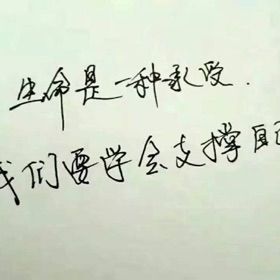 生命是一种承受.
我们要学会支撑自己